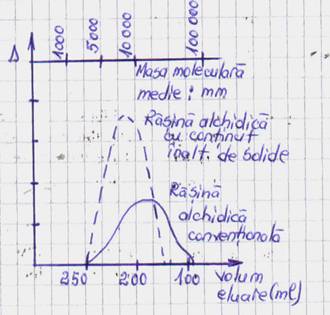 1000 5000 10000 100000
Δ
Masa moleculară
medie : mm
Rășină alchidică
cu conținut
înalt de solide
Rășină
alchidică
convențională
250 200 100
volum
eluare (ml)